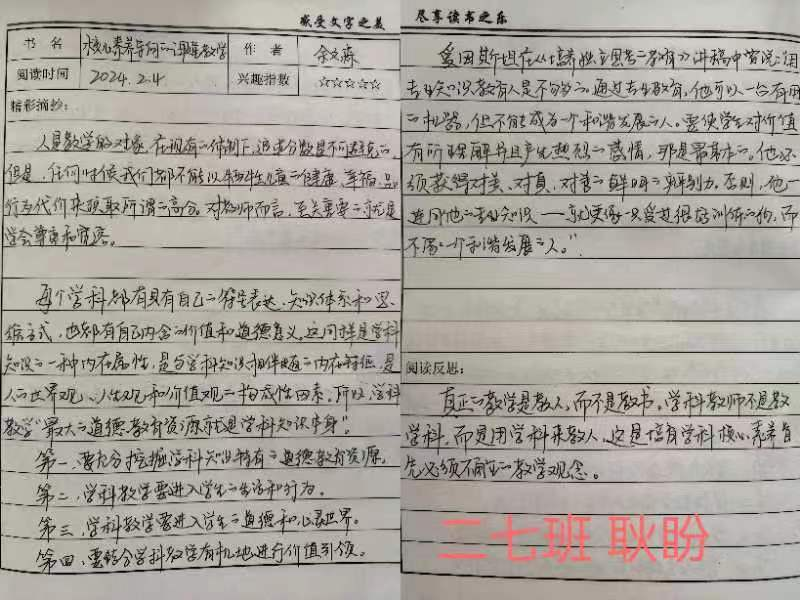 感受文字之美
书 名 核心素养导向的课堂教学 作 者 余文森
阅读时间 2024.2.4 兴趣指数 ☆☆☆☆☆
精彩摘抄:
人是教学的对象,在现有的体制下,追求分数是不可避免的。
但是,任何时候我们都不能以牺牲儿童的健康、幸福、品
行为代价来换取所谓的高分。对教师而言,至关重要的就是
学会尊重和宽容。
每个学科都有具有自己的符号表达、知识体系和思
维方式,也都有自己内含的价值和道德意义。这同样是学科
知识的一种内在属性,是与学科知识相伴随的内在特征,是
人的世界观、人生观和价值观的构成性因素。所以,学科
教学“最大的道德教育资源就是学科知识本身”。
第一、要充分挖掘学科知识特有的道德教育资源。
第二、学科教学要进入学生的生活和行为。
第三、学科教学要进入学生的道德和心灵世界。
第四、要结合学科教学有机地进行价值引领。
尽享读书之乐
爱因斯坦在《培养独立思考的教育》讲稿中曾说:“用
专业知识教育人是不够的。通过专业教育,他可以一台有用
的机器,但不能成为一个和谐发展的人。要使学生对价值
有所理解并且产生热烈的感情,那是最基本的。他必
须获得对美、对真、对善的鲜明的辨别力。否则,他一
连同他的专业知识——就更像一只受过很好训练的狗,而
不像一个和谐发展的人。”
阅读反思:
真正的教学是教人,而不是教书。学科教师不是教
学科,而是用学科来教人,这是培育学科核心素养首
先必须确立的教学观念。
二七班 耿盼